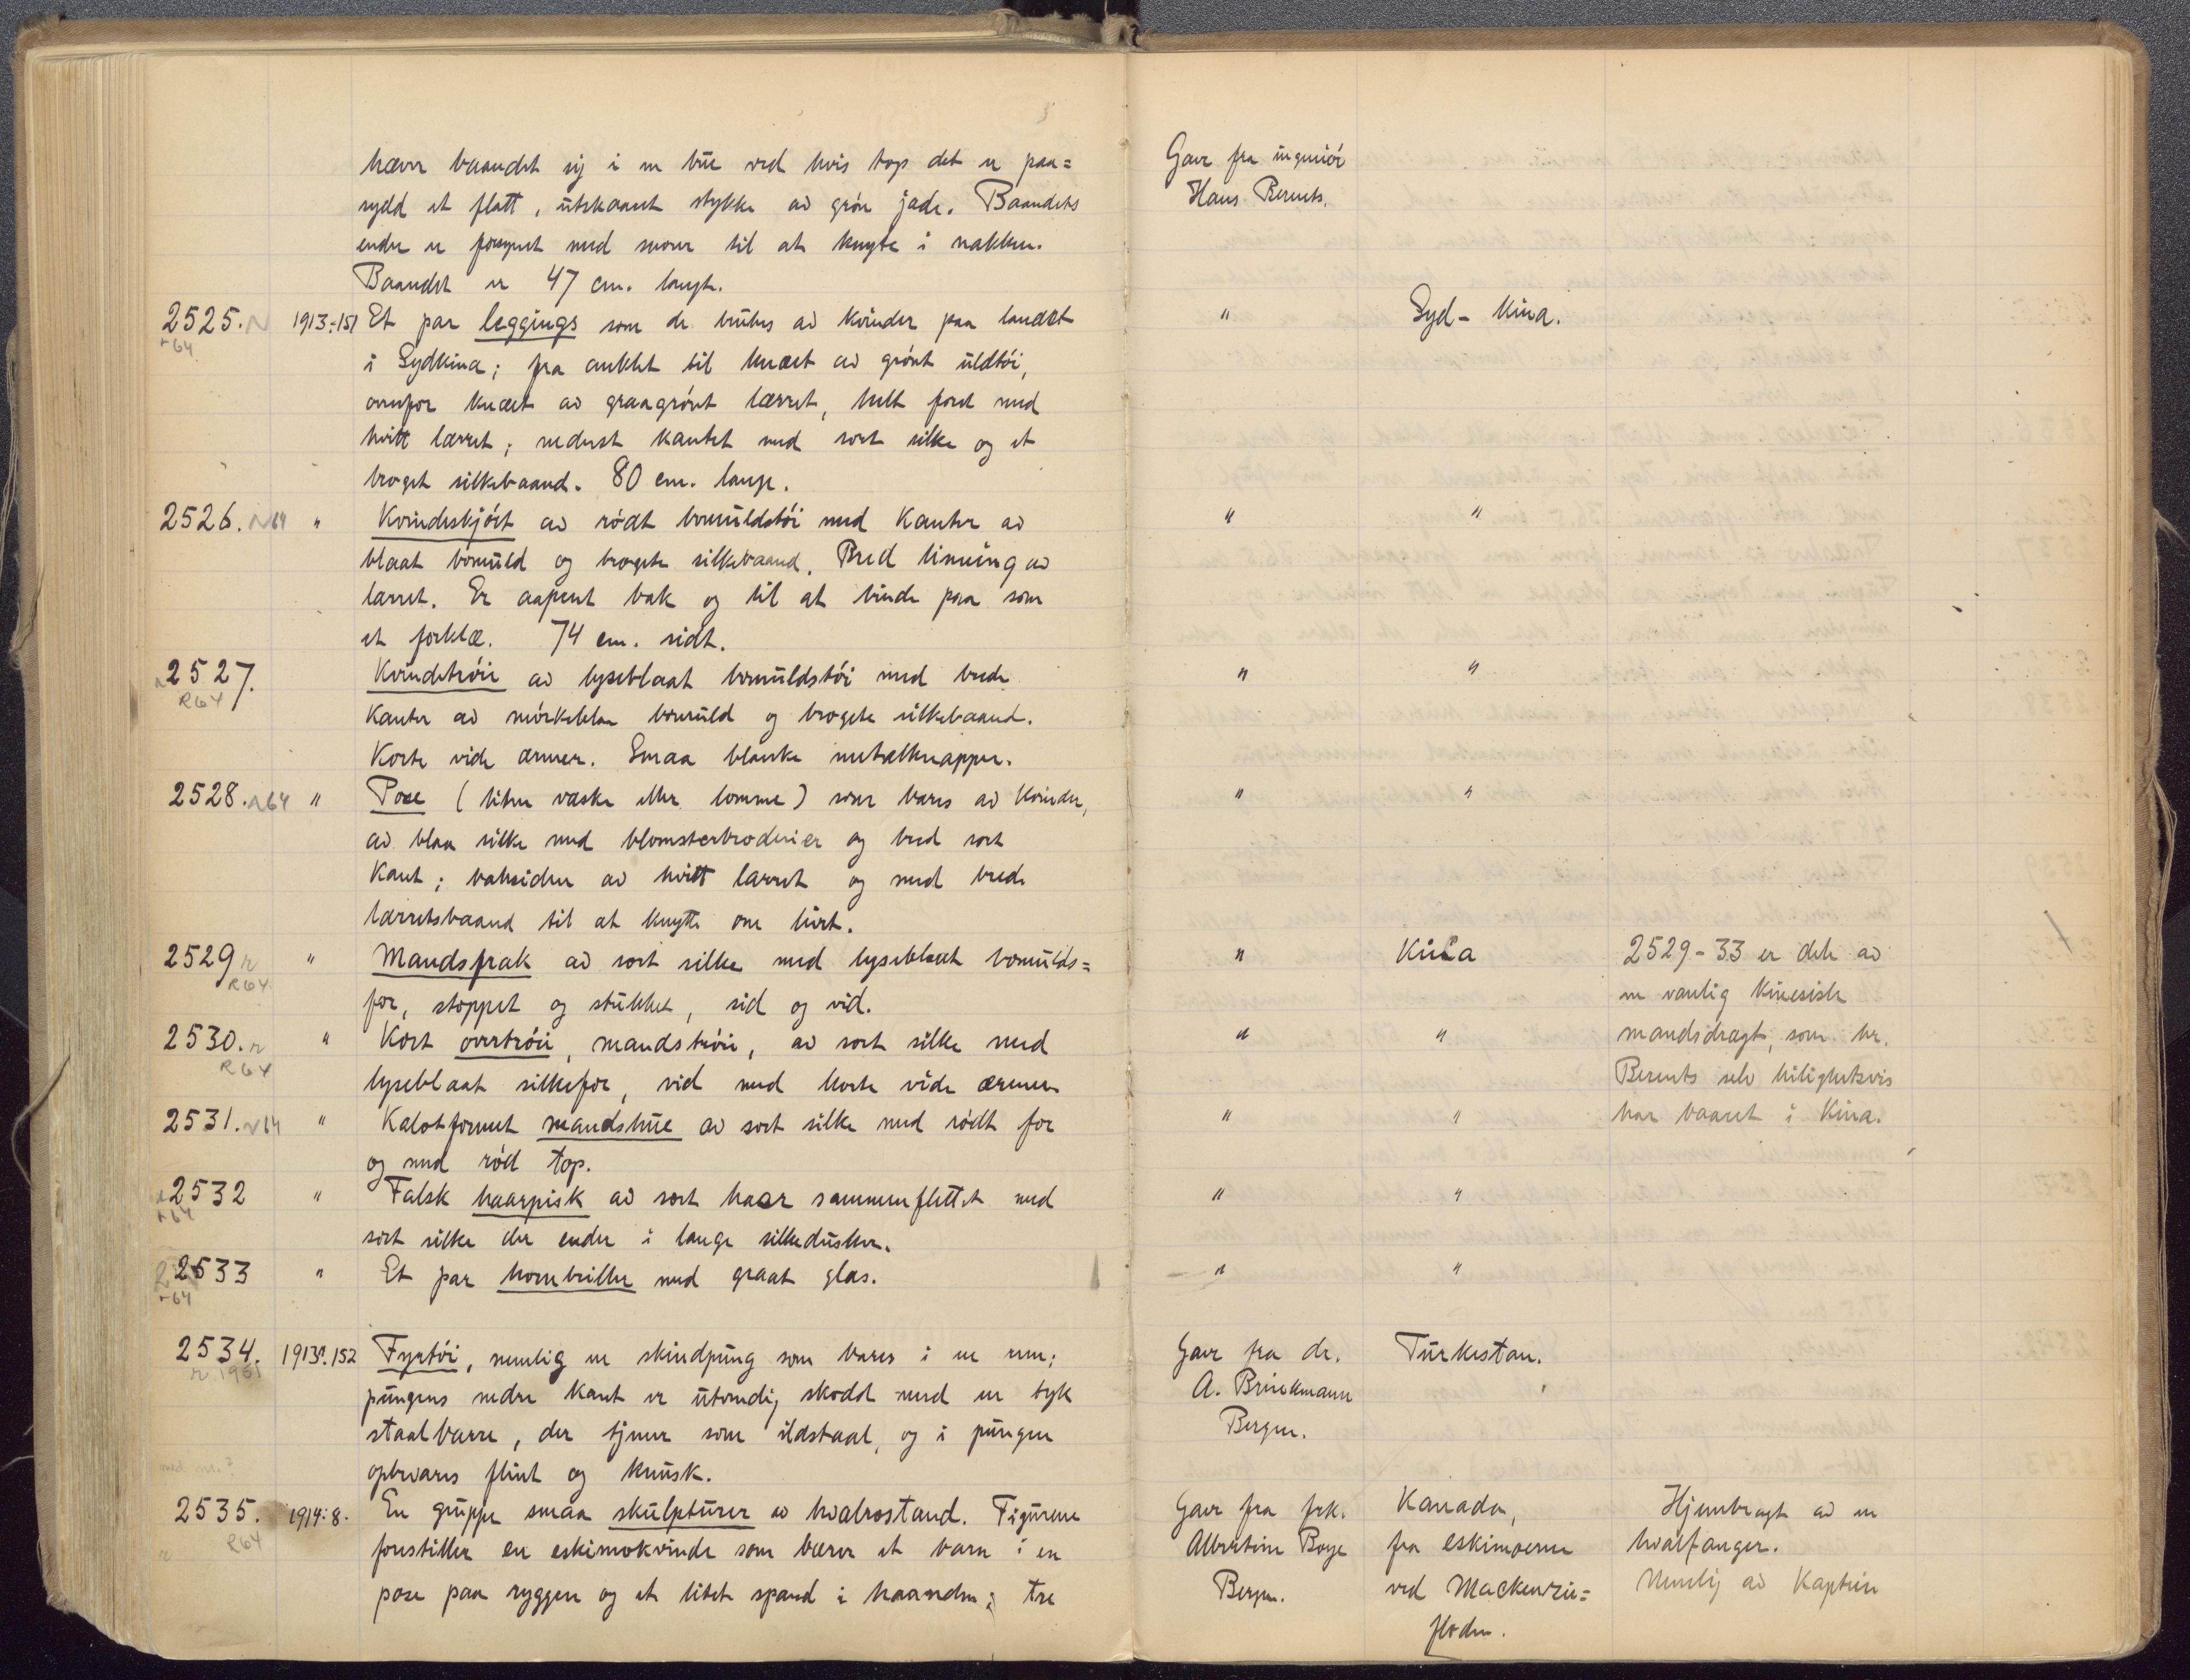 hæver baandet sig i en bue ved hvis top det er paa=
sydd et flatt, utskaaret stykke av grøn jade. Baandets
ender er forsynet med snorer til at knyte i nakken.
Baandet er 47 cm. langt.
Gave fra ingeniør
Hans Berents.
2525. N 1913:151 Et par leggings som de brukes av kvinder paa landet " Syd-Kina.
r64
i Sydkina; fra anklet til knæet av grønt uldtøi,
ovenfor knæet av graagrønt lærret, helt foret med
hvitt lærret; nederst kantet med sort silke og et
broget silkebaand. 80 cm. lange.
2526. N64 " Kvindeskjørt av rødt bomuldstøi med kanter av " "
blaat bomuld og brogete silkebaand. Bred linning av
lærret. Er aapent bak og til at binde paa som
et forklæ. 74 cm. sidt.
2527. Kvindetrøie av lyseblaat bomuldstøi med brede " "
R64
kanter av mørkeblaa bomuld og brogete silkebaand.
Korte vide ærmer. Smaa blanke metalknapper.
2528. r64 " Pose (liten væske eller lomme) som bæres av kvinder, " "
av blaa silke med blomsterbroderier og bred sort
kant; baksiden av hvitt lærret og med brede
lærretsbaand til at knytte om livet.
2529 r " Mandsfrak av sort silke med lyseblaat bomulds= " Kina 2529-33 er dele av
R64
for, stoppet og stukket, sid og vid. en vanlig kinesisk
2530. r " Kort overtrøie, mandstrøie, av sort silke med " " mandsdragt, som hr.
R64
lyseblaat silkefor, vid med korte vide ærmer Berents selv leilighetsvis
2531. r64 " Kalotformet mandshue av sort silke med rødt for " " har baaret i Kina.
og med rød top.
2532 " Falsk haarpisk av sort haar sammenflettet med " "
r64
sort silke der ender i lange silkedusker.
2533 " Et par hornbriller med graat glas. " "
r64
2534. 1913:152 Fyrtøi, nemlig en skindpung som bæres i en rem; Gave fra dr. Turkestan.
r. 1951
pungens nedre kant er utvendig skodd med en tyk A. Brinkmann
staalbarre, der tjener som ildstaal, og i pungen Bergen.
opbevares flint og knusk.
med nr.?
2535. 1914:8. En gruppe smaa skulpturer av hvalrostand. Figurene Gave fra frk. Kanada, Hjembragt av en
R64
forestiller en eskimokvinde som bærer et barn i en Albertine Boye fra eskimoerne hvalfanger.
pose paa ryggen og et litet spand i haanden; tre Bergen. ved Mackenzie= Nemlig av Kaptein
floden.